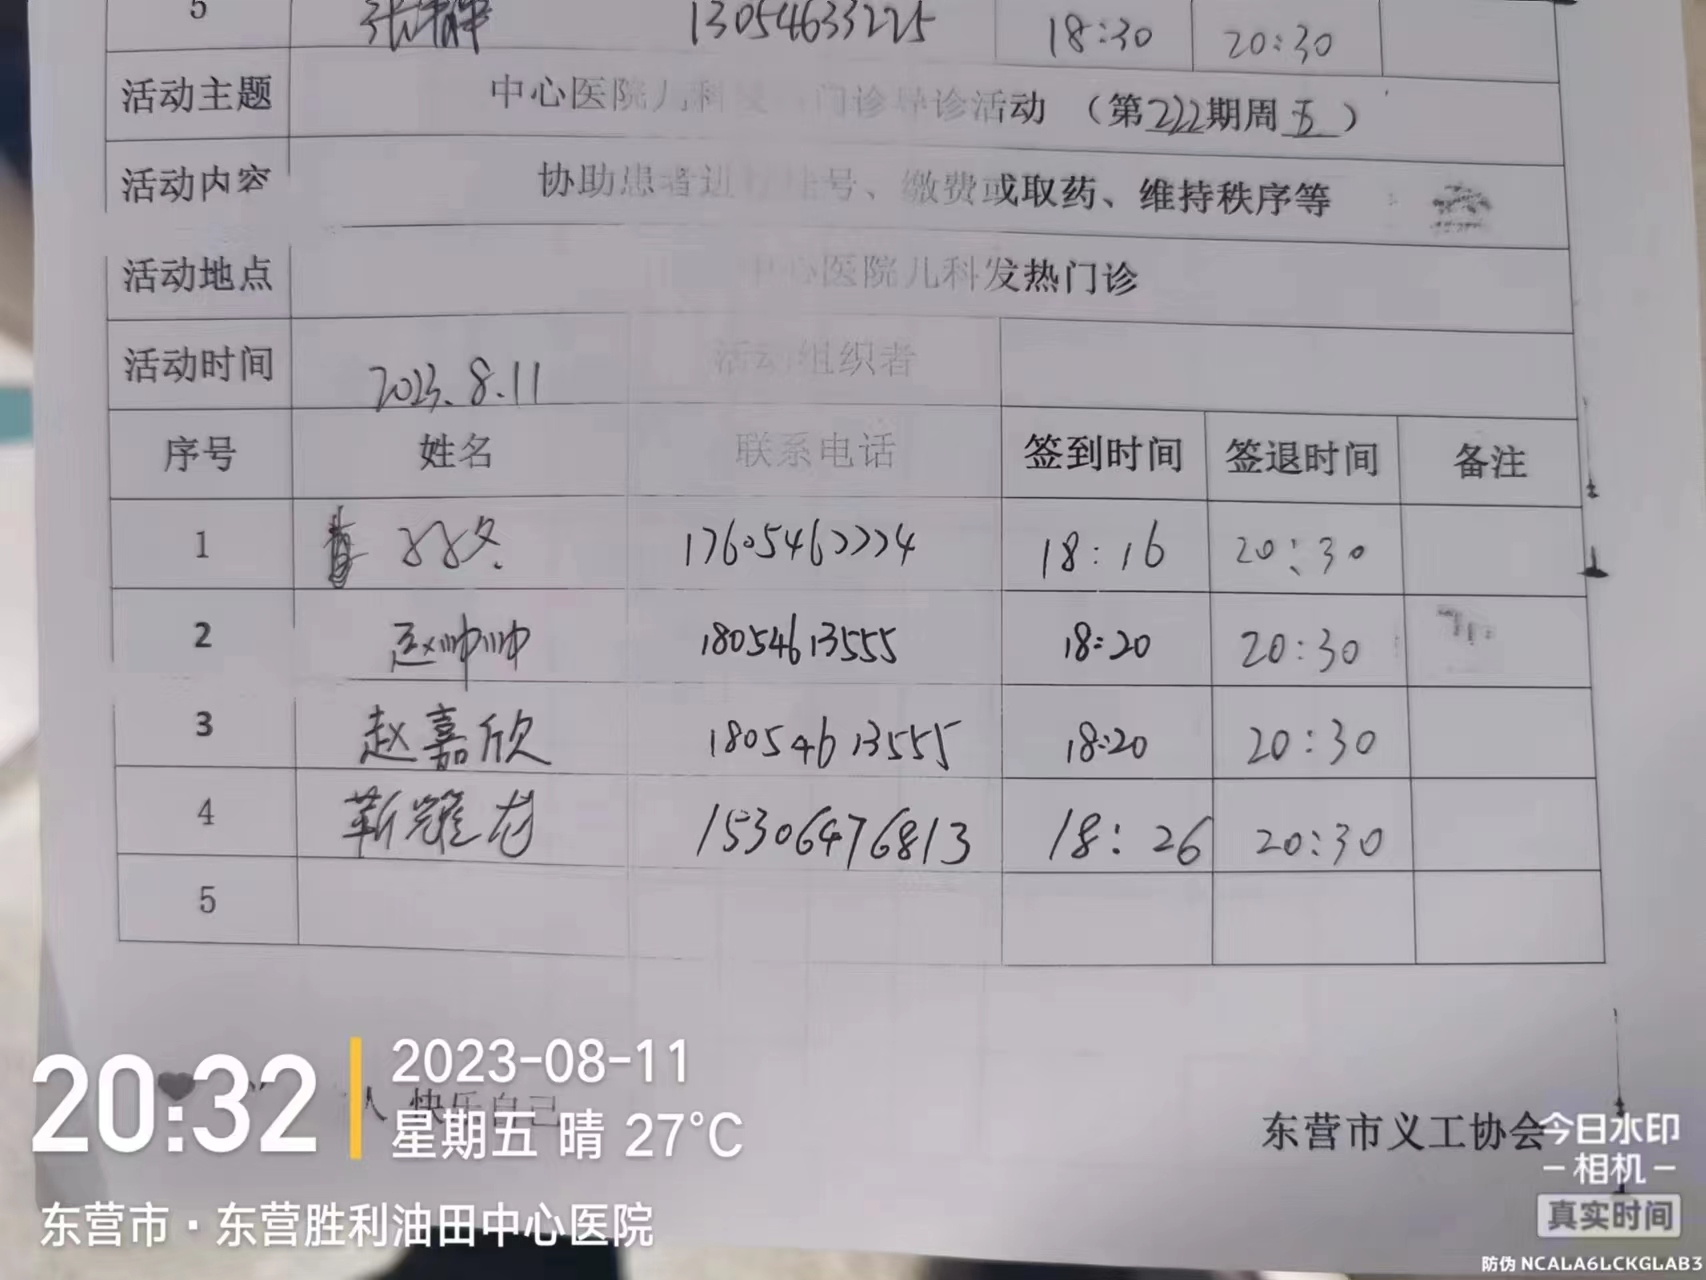 5 张静 13054633225 18:30 20:30
活动主题 中心医院儿科发热门诊导诊活动 （第222期周五）
活动内容 协助患者进行挂号、缴费或取药、维持秩序等
活动地点 中心医院儿科发热门诊
活动时间 2023.8.11 活动组织者
序号 姓名 联系电话 签到时间 签退时间 备注
1 17605462224 18:16 20:30
2 赵帅帅 18054613555 18:20 20:30
3 赵嘉欣 18054613555 18:20 20:30
4 靳耀龙 15306476813 18:26 20:30
5
人 快乐自己
东营市义工协会
20:32
2023-08-11
星期五 晴 27°C
东营市·东营胜利油田中心医院
今日水印
相机
真实时间
防伪 NCALA6LCKGLAB3